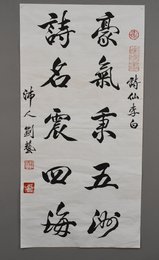 豪氣秉五洲
詩名震四海
詩仙李白
沛人